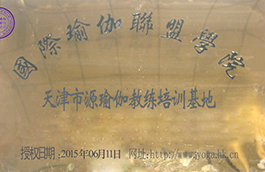 國際瑜伽聯盟學院
天津市源瑜伽教练培训基地
授权日期:2015年06月11日 网址:http://www.yoga.hk.cn